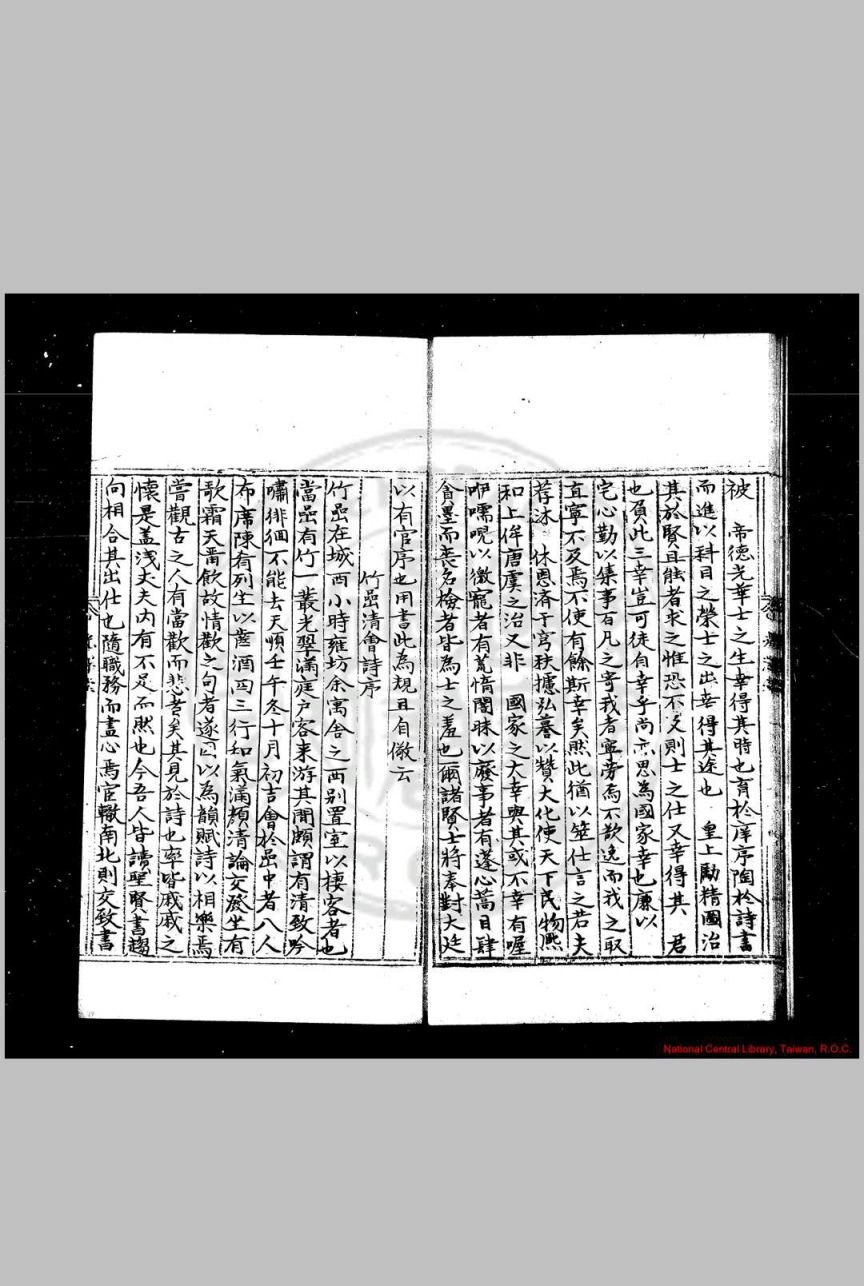 被　帝德光華士之生幸得其時也育於庠序陶於詩書
而進以科目之榮士之出幸得其途也　皇上勵精圖治
其於賢且能者求之惟恐不及則士之仕又幸得其　君
也負此三幸豈可徒自幸乎尚亦思為國家幸也廉以
宅心勤以集事百凡之寄我者寧旁焉不歉逸而我之取
直寧不及焉不使有餘斯幸矣然此猶以筮仕言之若夫
荐沐　休恩済于穹秩攄弘謩以贊大化使天下民物熙
和上侔唐虞之治又非　國家之大幸與其或不幸有喔
咿嚅唲以徼寵者有荒惰闇昧以廢事者有蓬心蒿目肆
貪墨而喪名檢者皆為士之羞也爾諸賢士將奉對大廷
以有官序也用書此為規且自儆云
竹嵒清會詩序
竹嵒在城西小時雍坊余寓舍之西別置室以棲客者也
當嵒有竹一叢光翠滿庭戶客来游其間頗謂有清致吟
嘯徘徊不能去天順壬午冬十月初吉會於嵒中者八人
布席陳肴列坐以齒酒四三行和氣滿顏清論交發坐有
歌霜天畱飲故情歡之句者遂以為韻賦詩以相樂焉
嘗觀古之人有當歡而悲者矣其見於詩也率皆戚戚之
懷是盖浅丈夫内有不足而然也今吾人皆讀聖賢書趨
向相合其出仕也隨職務而盡心焉宦轍南北則交致書
National Central Library, Taiwan, R.O.C.